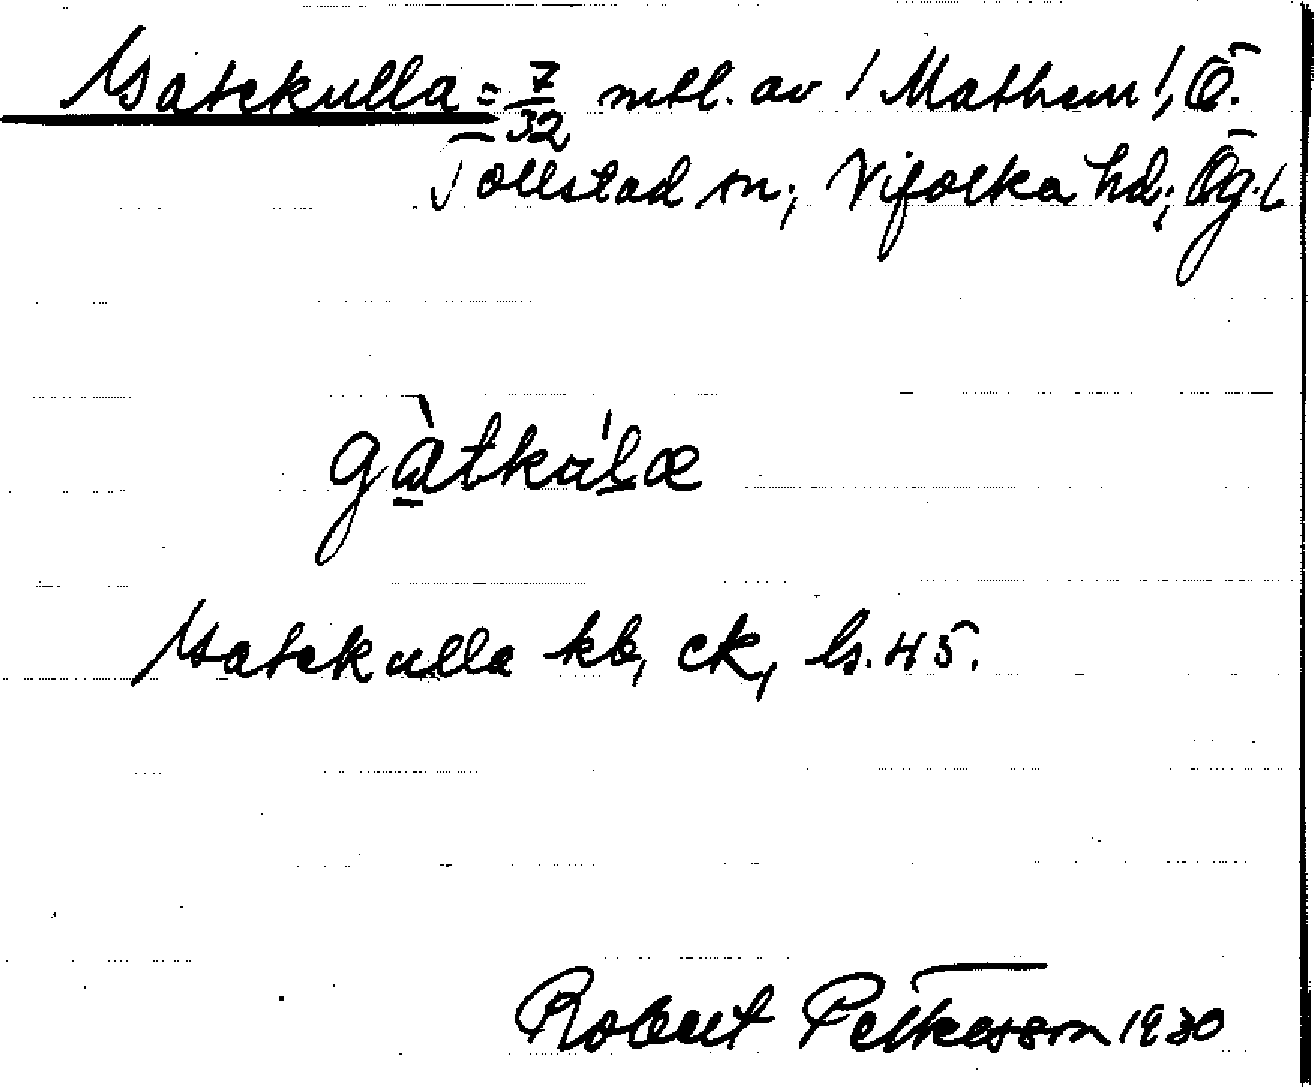 Gatekulla = 7/32 mtl. av / Mathem /, Ö.
Tollstad sn; Vifolka hd; Ög. l
gàtkuḷa
Gatekulla kb, ck, ls. 45.
Robert Petterson 1930